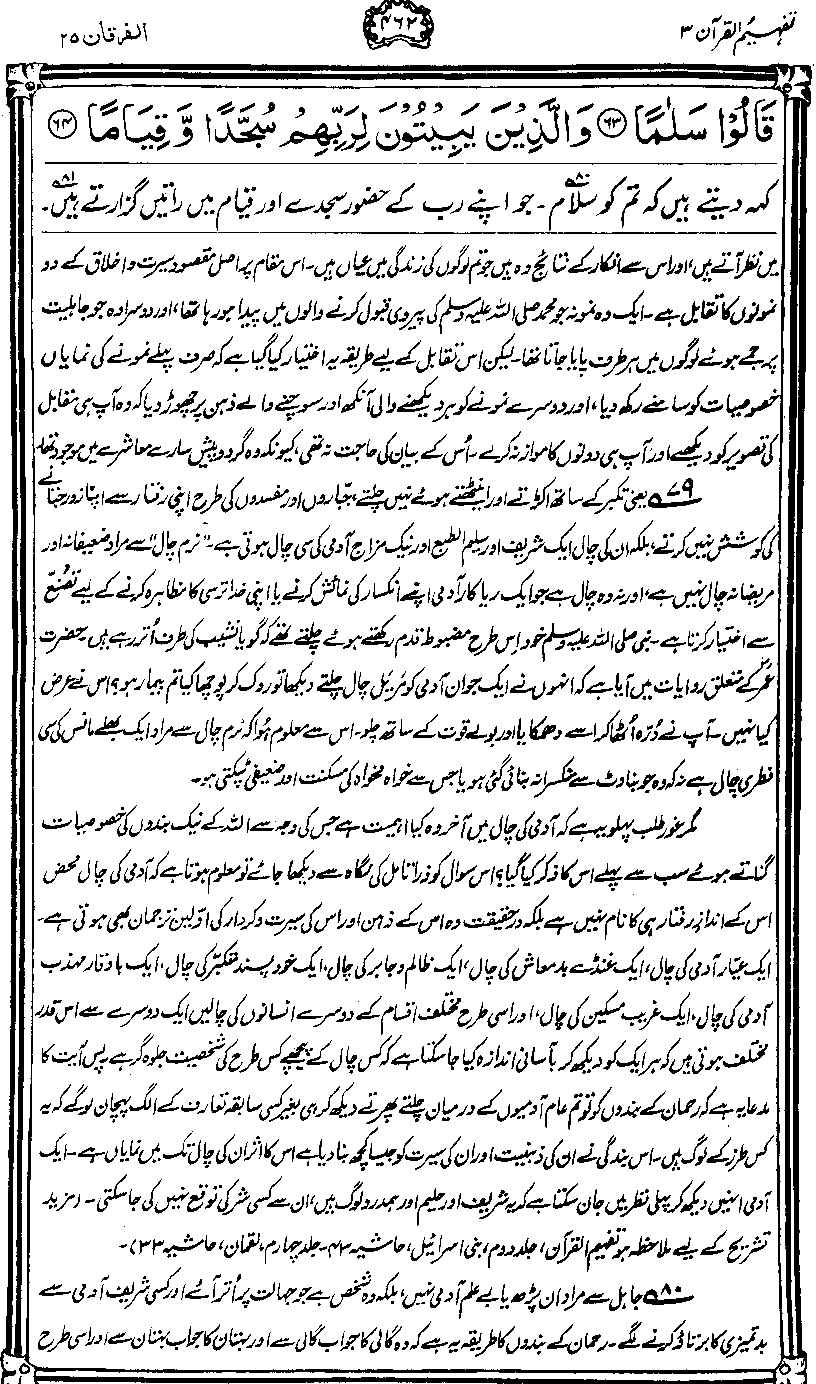 تفہیم القرآن ۳
۴۶۲
الفرقان ۲۵
قَالُوْا سَلٰمًا ﴿۶۳﴾ وَالَّذِيْنَ يَبِيْتُوْنَ لِرَبِّهِمْ سُجَّدًا وَّ قِيَامًا ﴿۶۴﴾
کہہ دیتے ہیں کہ تم کو سلام ۸۰۔ جو اپنے رب کے حضور سجدے اور قیام میں راتیں گزارتے ہیں ۸۱۔
میں نظر آتے ہیں، اور اس سے انکار کے نتائج وہ ہیں جو تم لوگوں کی زندگی میں عیاں ہیں۔ اس مقام پر اصل مقصود سیرت و اخلاق کے دو
نمونوں کا تقابل ہے۔ ایک وہ نمونہ جو محمد صلی اللہ علیہ وسلم کی پیروی قبول کرنے والوں میں پیدا ہو رہا تھا، اور دوسرا وہ جو جاہلیت
پر جمے ہوئے لوگوں میں ہر طرف پایا جاتا تھا۔ لیکن اس تقابل کے لیے طریقہ یہ اختیار کیا گیا ہے کہ صرف پہلے نمونے کی نمایاں
خصوصیات کو سامنے رکھ دیا، اور دوسرے نمونے کو ہر دیکھنے والی آنکھ اور سوچنے والے ذہن پر چھوڑ دیا کہ وہ آپ ہی مقابل
کی تصویر کو دیکھے اور آپ ہی دونوں کا موازنہ کرے۔ اُس کے بیان کی حاجت نہ تھی، کیونکہ وہ گرد و پیش سارے معاشرے میں موجود تھا۔
۷۹ یعنی تکبر کے ساتھ اکڑتے اور اینٹھتے ہوئے نہیں چلتے، جباروں اور مفسدوں کی طرح اپنی رفتار سے اپنا زور جتانے
کی کوشش نہیں کرتے، بلکہ ان کی چال ایک شریف اور سلیم الطبع اور نیک مزاج آدمی کی سی چال ہوتی ہے۔ "نرم چال" سے مراد ضعیفانہ اور
مریضانہ چال نہیں ہے، اور نہ وہ چال ہے جو ایک ریاکار آدمی اپنے انکسار کی نمائش کرنے یا اپنی خدا ترسی کا مظاہرہ کرنے کے لیے تصنّع
سے اختیار کرتا ہے۔ نبی صلی اللہ علیہ وسلم خود اِس طرح مضبوط قدم رکھتے ہوئے چلتے تھے کہ گویا نشیب کی طرف اُتر رہے ہیں۔ حضرت
عمرؓ کے متعلق روایات میں آیا ہے کہ انہوں نے ایک جوان آدمی کو مریل چال چلتے دیکھا تو روک کر پوچھا کیا تم بیمار ہو؟ اس نے عرض
کیا نہیں۔ آپ نے دُرّہ اُٹھا کر اسے دھمکایا اور بولے قوت کے ساتھ چلو۔ اس سے معلوم ہُوا کہ نرم چال سے مراد ایک بھلے مانس کی سی
فطری چال ہے نہ کہ وہ جو بناوٹ سے منکسرانہ بنائی گئی ہو یا جس سے خواہ مخواہ کی مسکنت اور ضعیفی ٹپکتی ہو۔
مگر غور طلب پہلو یہ ہے کہ آدمی کی چال میں آخر وہ کیا اہمیت ہے جس کی وجہ سے اللہ کے نیک بندوں کی خصوصیات
گناتے ہوئے سب سے پہلے اس کا ذکر کیا گیا؟ اس سوال کو ذرا تامل کی نگاہ سے دیکھا جائے تو معلوم ہوتا ہے کہ آدمی کی چال محض
اس کے اندازِ رفتار ہی کا نام نہیں ہے بلکہ درحقیقت وہ اس کے ذہن اور اس کی سیرت و کردار کی اوّلین ترجمان بھی ہوتی ہے۔
ایک عیّار آدمی کی چال، ایک غنڈے بدمعاش کی چال، ایک ظالم و جابر کی چال، ایک خود پسند متکبّر کی چال، ایک باوقار مہذب
آدمی کی چال، ایک غریب مسکین کی چال، اور اسی طرح مختلف اقسام کے دوسرے انسانوں کی چالیں ایک دوسرے سے اس قدر
مختلف ہوتی ہیں کہ ہر ایک کو دیکھ کر بآسانی اندازہ کیا جا سکتا ہے کہ کس چال کے پیچھے کس طرح کی شخصیت جلوہ گر ہے۔ پس آیت کا
مدعا یہ ہے کہ رحمان کے بندوں کو تو تم عام آدمیوں کے درمیان چلتے پھرتے دیکھ کر ہی بغیر کسی سابقہ تعارف کے الگ پہچان لو گے کہ یہ
کس طرز کے لوگ ہیں۔ اس بندگی نے ان کی ذہنیت اور ان کی سیرت کو جیسا کچھ بنا دیا ہے اس کا اثر ان کی چال تک میں نمایاں ہے۔ ایک
آدمی انہیں دیکھ کر پہلی نظر میں جان سکتا ہے کہ یہ شریف اور حلیم اور ہمدرد لوگ ہیں، ان سے کسی شر کی توقع نہیں کی جا سکتی۔ (مزید
تشریح کے لیے ملاحظہ ہو تفہیم القرآن، جلد دوم، بنی اسرائیل، حاشیہ ۴۳۔ جلد چہارم، لقمان، حاشیہ ۳۳)۔
۸۰ جاہل سے مراد ان پڑھ یا بے علم آدمی نہیں، بلکہ وہ شخص ہے جو جہالت پر اُتر آئے اور کسی شریف آدمی سے
بدتمیزی کا برتاؤ کرنے لگے۔ رحمان کے بندوں کا طریقہ یہ ہے کہ وہ گالی کا جواب گالی سے اور بہتان کا جواب بہتان سے اور اسی طرح